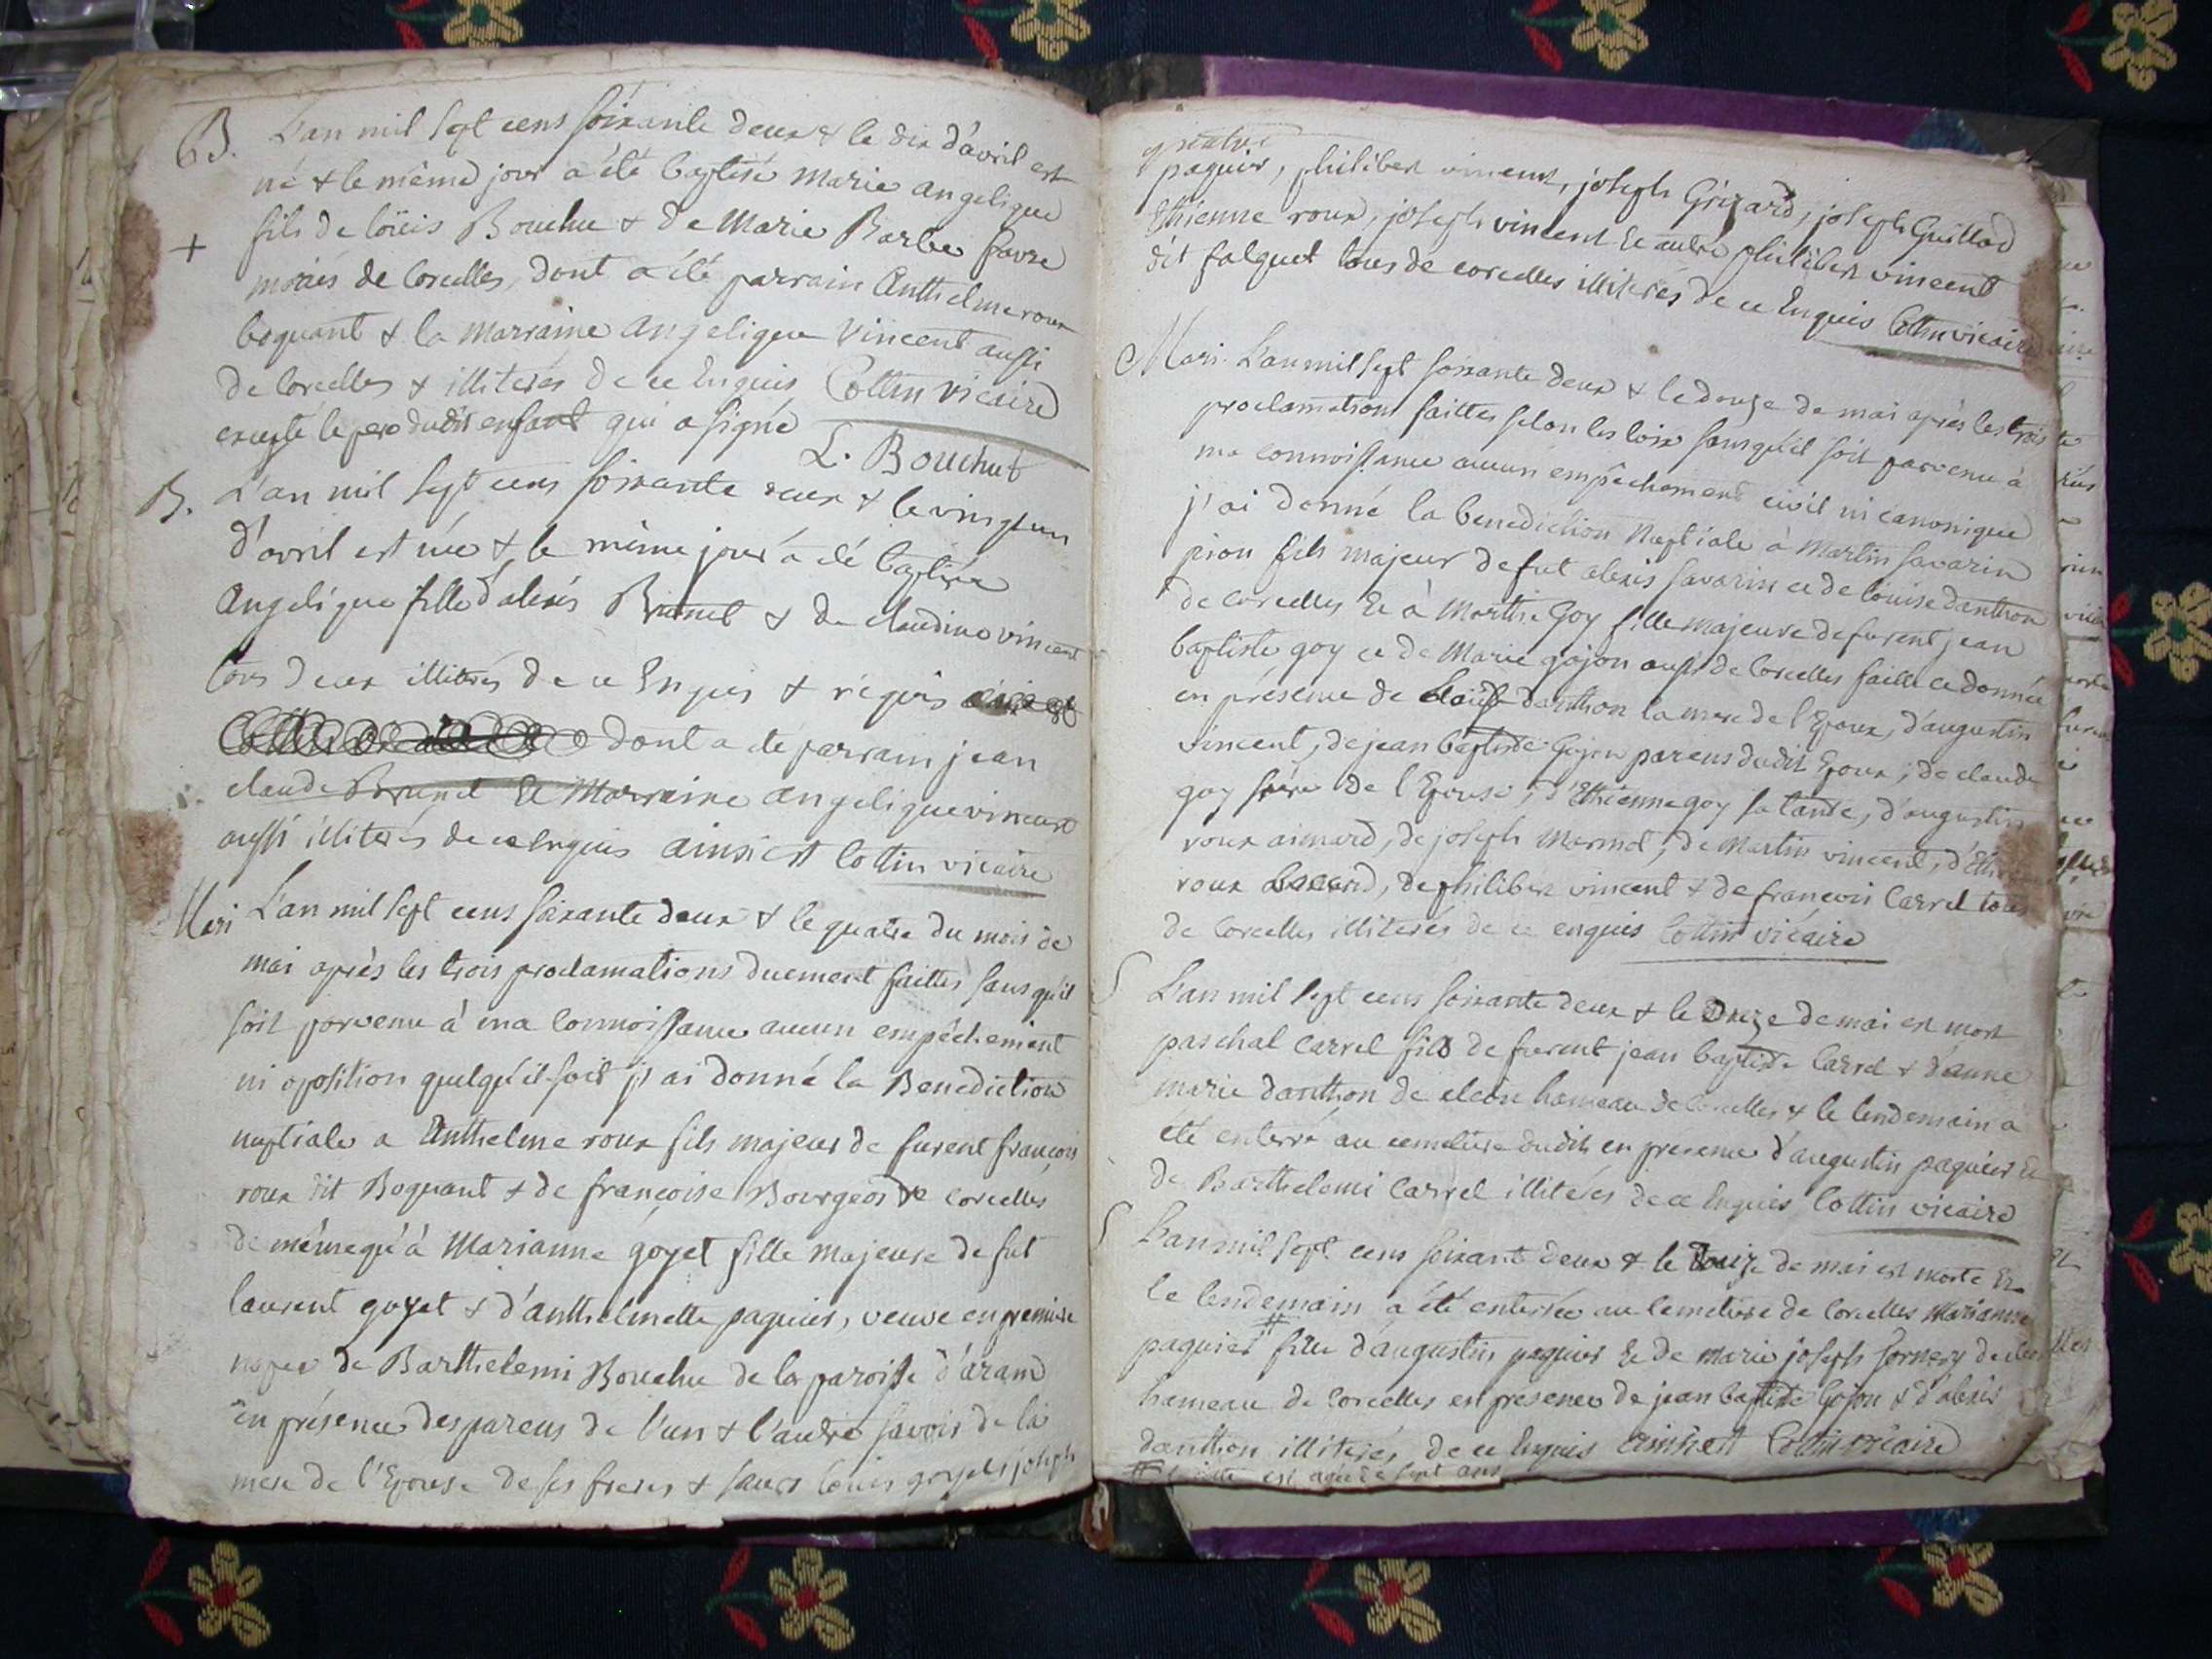 B. L'an mil sept cens soixante deux & le dix d'avril est
né & le même jour a été baptisé marie angelique
+ fils de loüis Bouchu & de Marie Barbe favre
mariés de Corcelles, dont a été parrain Anthelme roux
boquant & la marraine angelique vincent aussi
de Corcelles & illiterés de ce Enquis Cottin vicaire
excepté le pere dudit enfant qui a signé
L. Bouchut
B. L'an mil sept cens soixante deux & le vingt un
d'avril est née & le même jour a été baptisée
Angelique fille d'alexis Brunet & de claudine vincent
tous deux illiterés de ce Enquis & requis
dont a été parrain jean
claude Brunet Et Marraine angelique vincent
aussi illiterés de ce enquis ainsi est Cottin vicaire
Mari L'an mil sept cens soixante deux & le quatre du mois de
mai après les trois proclamations duement faittes sans qu'il
soit parvenu à ma connoissance aucun empêchement
ni oposition quelqu'il soit j'ai donné la Benediction
nuptiale a Anthelme roux fils majeur de furent françois
roux dit Boquant & de françoise Bourgeos de corcelles
de même qu'à Marianne goyet fille majeure de fut
laurent goyet & d'anthelmette paquier, veuve en premiere
nopce de Barthelemi Bouchu de la paroisse d'arand
en présence des parens de l'un & l'autre savoir de la
mere de l'Epouse de ses freres & sœurs loüis goyet joseph
paquier, philibert vincent, joseph Grizard, joseph Guillod
Ethienne roux, joseph vincent Et autre philibert vincent
dit falquet tous de corcelles illiterés de ce Enquis Cottin vicaire
Mari. L'an mil sept soixante deux & le douze de mai après les trois
proclamations faittes selon les loix sans qu'il soit parvenu à
ma connoissance aucun empêchement civil ni canonique
j'ai donné la benediction Nuptiale à Martin savarin
pion fils majeur de fut alexis savarin et de loüise danthon
de corcelles Et à Marthe Goy fille majeure de furent jean
baptiste goy et de Marie gojon aussi de Corcelles faitte et donnée
en présence de danthon la mere de l'Epoux, d'augustin
vincent, de jean baptiste Gojon parens dudit Epoux; de claude
goy frere de l'Epouse, d'Ethienne goy sa tante, d'augustin
roux aimard, de joseph Mermet, de Martin vincent,
roux de philibert vincent & de françois Carrel tous
de Corcelles illiterés de ce enquis Cottin vicaire
S L'an mil sept cens soixante deux & le onze de mai est mort
paschal Carrel fils de furent jean baptiste Carrel & d'anne
marie danthon de cleon hameau de Corcelles & le lendemain a
été enterré au cemetiere dudit en présence d'augustin paquier Et
de Barthelemi Carrel illiterés de ce Enquis Cottin vicaire
S L'an mil sept cens soixante deux & le de mai est morte Et
le lendemain a été enterrée au cemetiere de Corcelles Marianne
paquier # fille d'augustin paquier Et de marie joseph de
hameau de Corcelles en presence de jean baptiste Gojon & d'alexis
danthon illiterés de ce Enquis ainsi est Cottin vicaire
# est agée de sept ans